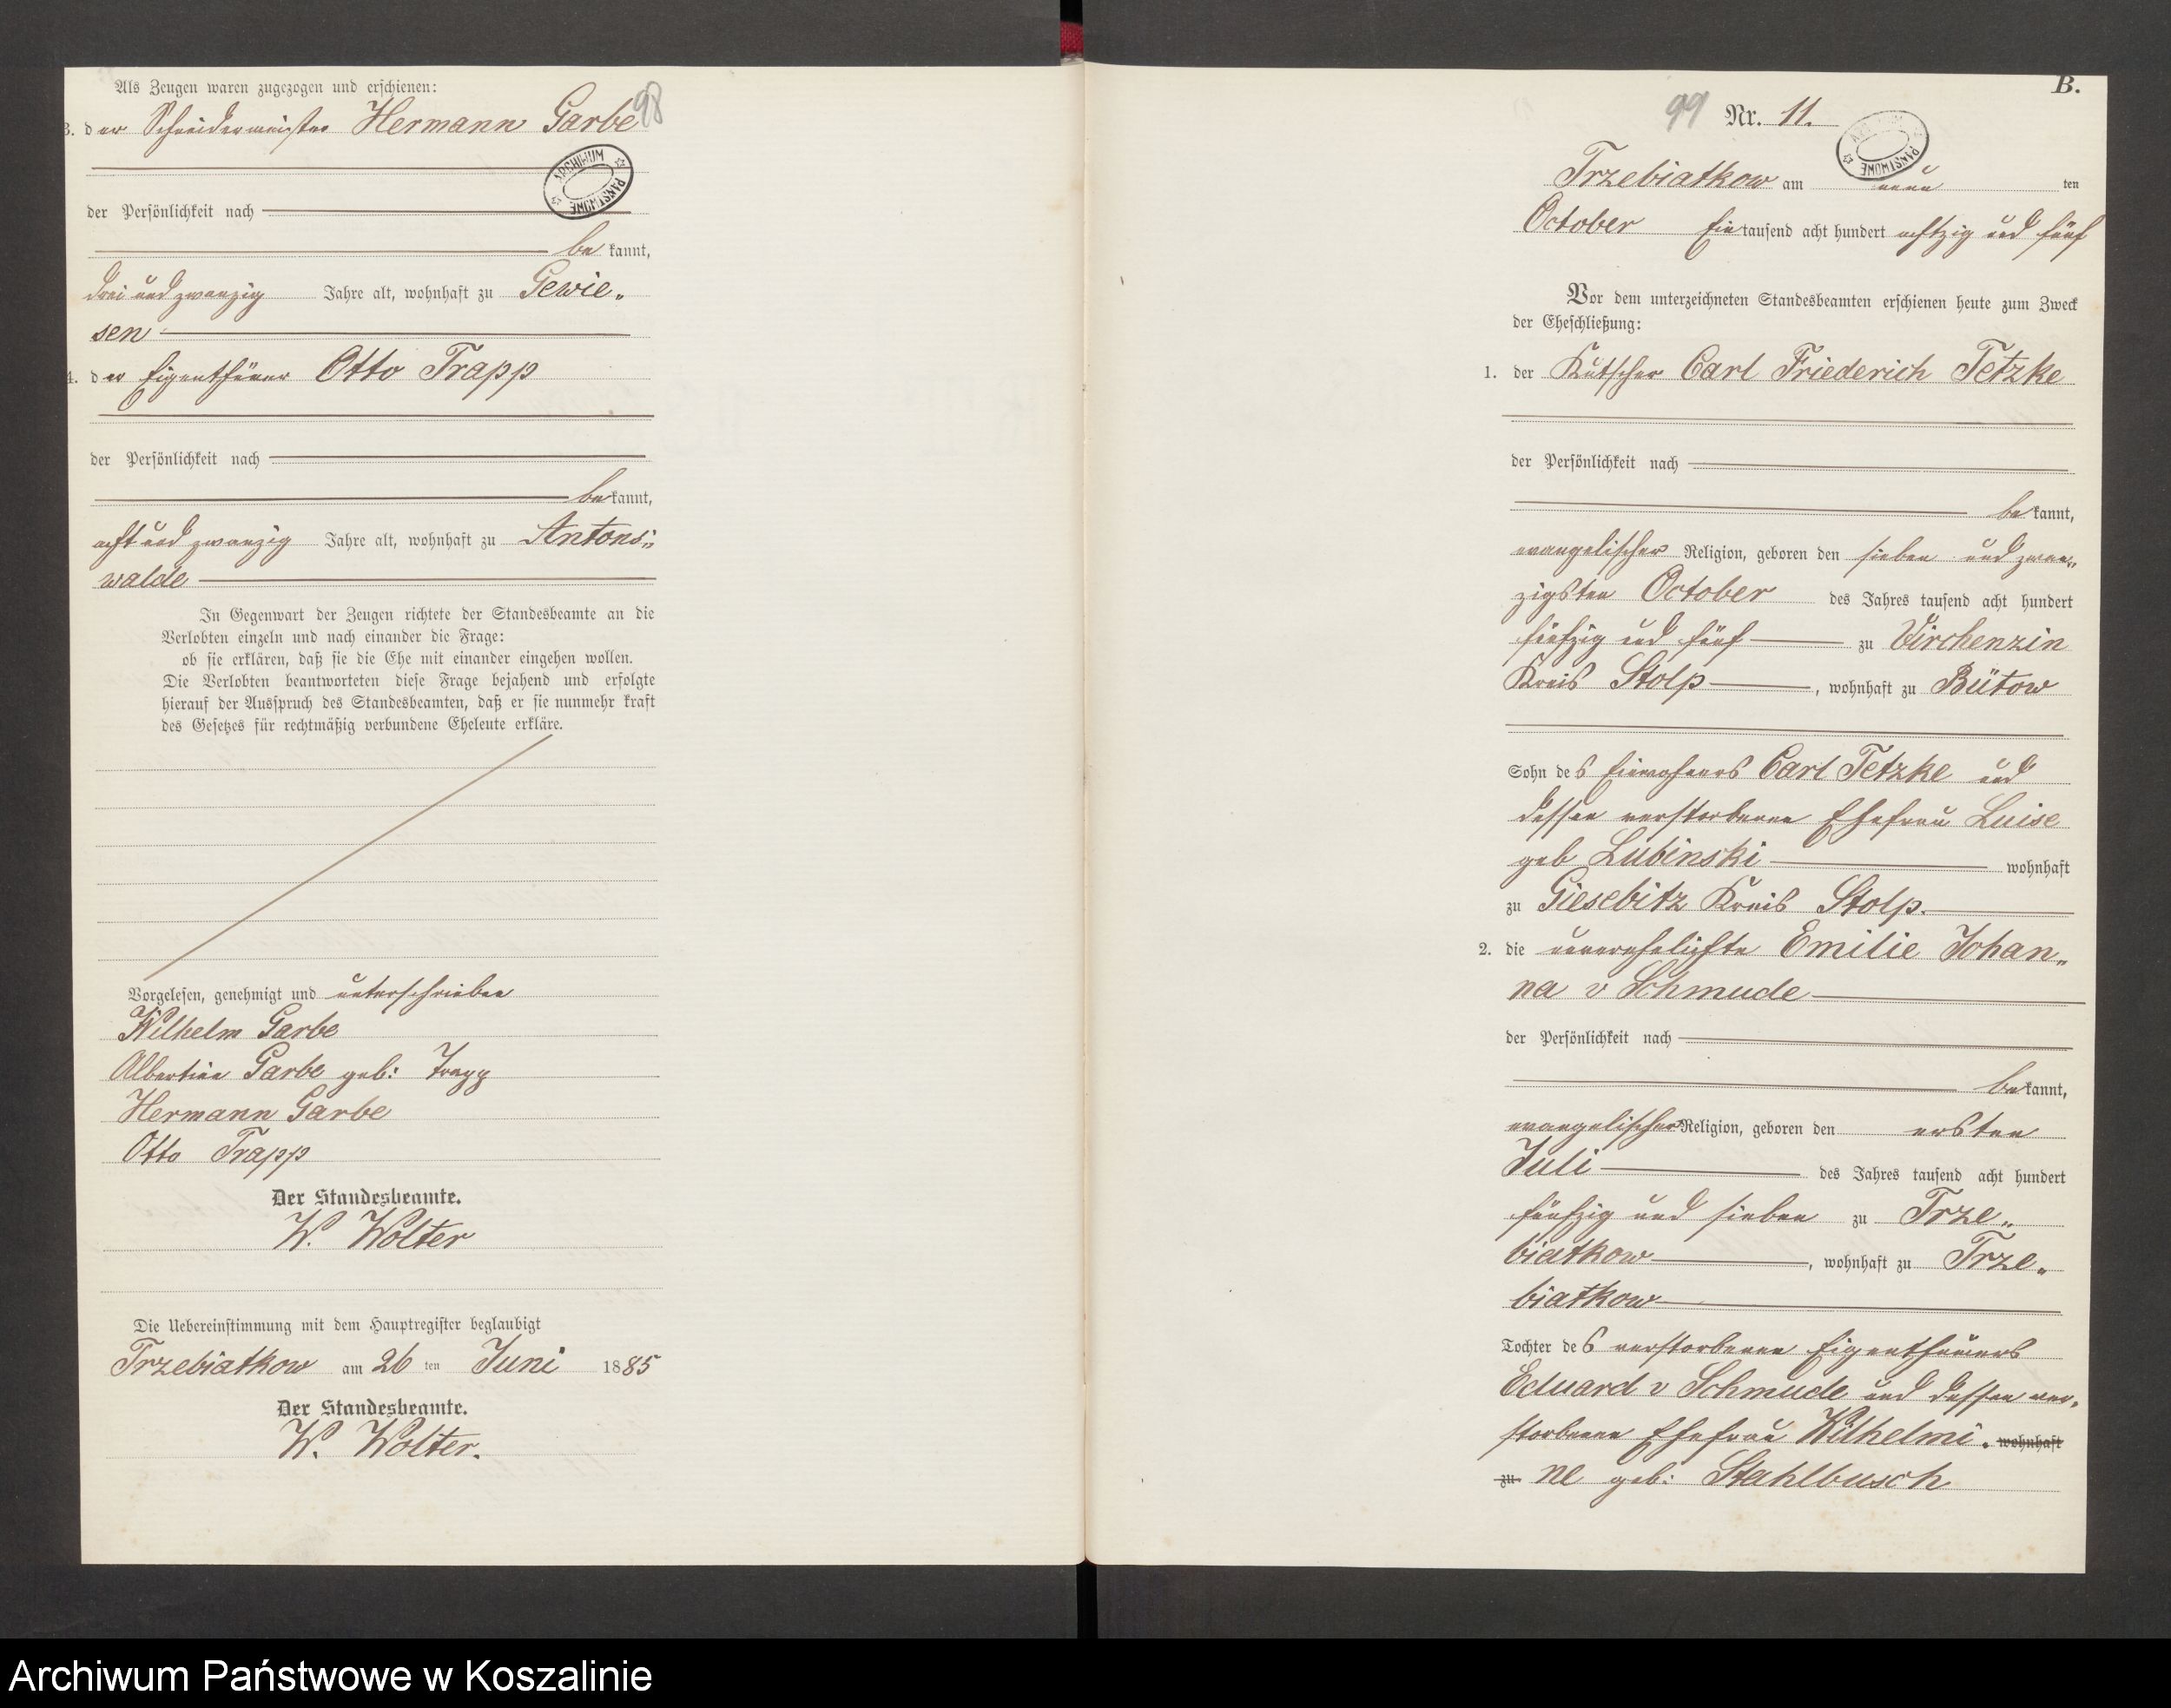 Als Zeugen waren zugezogen und erschienen:
98
3. der Schneidermeister Hermann Garbe
ARCHIWUM PAŃSTWOWE
der Persönlichkeit nach
be kannt,
drei und zwanzig Jahre alt, wohnhaft zu Gewie„
sen
4. der Eigenthümer Otto Trapp
der Persönlichkeit nach
be kannt,
acht und zwanzig Jahre alt, wohnhaft zu Antons„
walde
In Gegenwart der Zeugen richtete der Standesbeamte an die
Verlobten einzeln und nach einander die Frage:
ob sie erklären, daß sie die Ehe mit einander eingehen wollen.
Die Verlobten beantworteten diese Frage bejahend und erfolgte
hierauf der Ausspruch des Standesbeamten, daß er sie nunmehr kraft
des Gesetzes für rechtmäßig verbundene Eheleute erkläre.
Vorgelesen, genehmigt und unterschrieben
Wilhelm Garbe
Albertine Garbe geb: Trapp
Hermann Garbe
Otto Trapp
Der Standesbeamte.
W. Wolter
Die Uebereinstimmung mit dem Hauptregister beglaubigt
Trzebiatkow am 26 ten Juni 1885
Der Standesbeamte.
W. Wolter.
B.
99 Nr. 11.
Trzebiatkow am neun ten
October Ein tausend acht hundert achtzig und fünf
Vor dem unterzeichneten Standesbeamten erschienen heute zum Zweck
der Eheschließung:
1. der Kutscher Carl Friederich Tetzke
der Persönlichkeit nach
be kannt,
evangelischer Religion, geboren den sieben und zwan„
zigsten October des Jahres tausend acht hundert
fünfzig und fünf zu Virchenzin
Kreis Stolp, wohnhaft zu Bütow
Sohn des Einwohners Carl Tetzke und
dessen verstorbenen Ehefrau Luise
geb Lubinski wohnhaft
zu Giesebitz Kreis Stolp.
2. die unverehelichte Emilie Johan„
na v Schmude
der Persönlichkeit nach
be kannt,
evangelischer Religion, geboren den ersten
Juli des Jahres tausend acht hundert
fünfzig und sieben zu Trze„
biatkow, wohnhaft zu Trze„
biatkow
Tochter des verstorbenen Eigenthümers
Eduard v Schmude und dessen ver„
storbenen Ehefrau Wilhelmi„ wohnhaft
zu ne geb: Stahlbusch
Archiwum Państwowe w Koszalinie